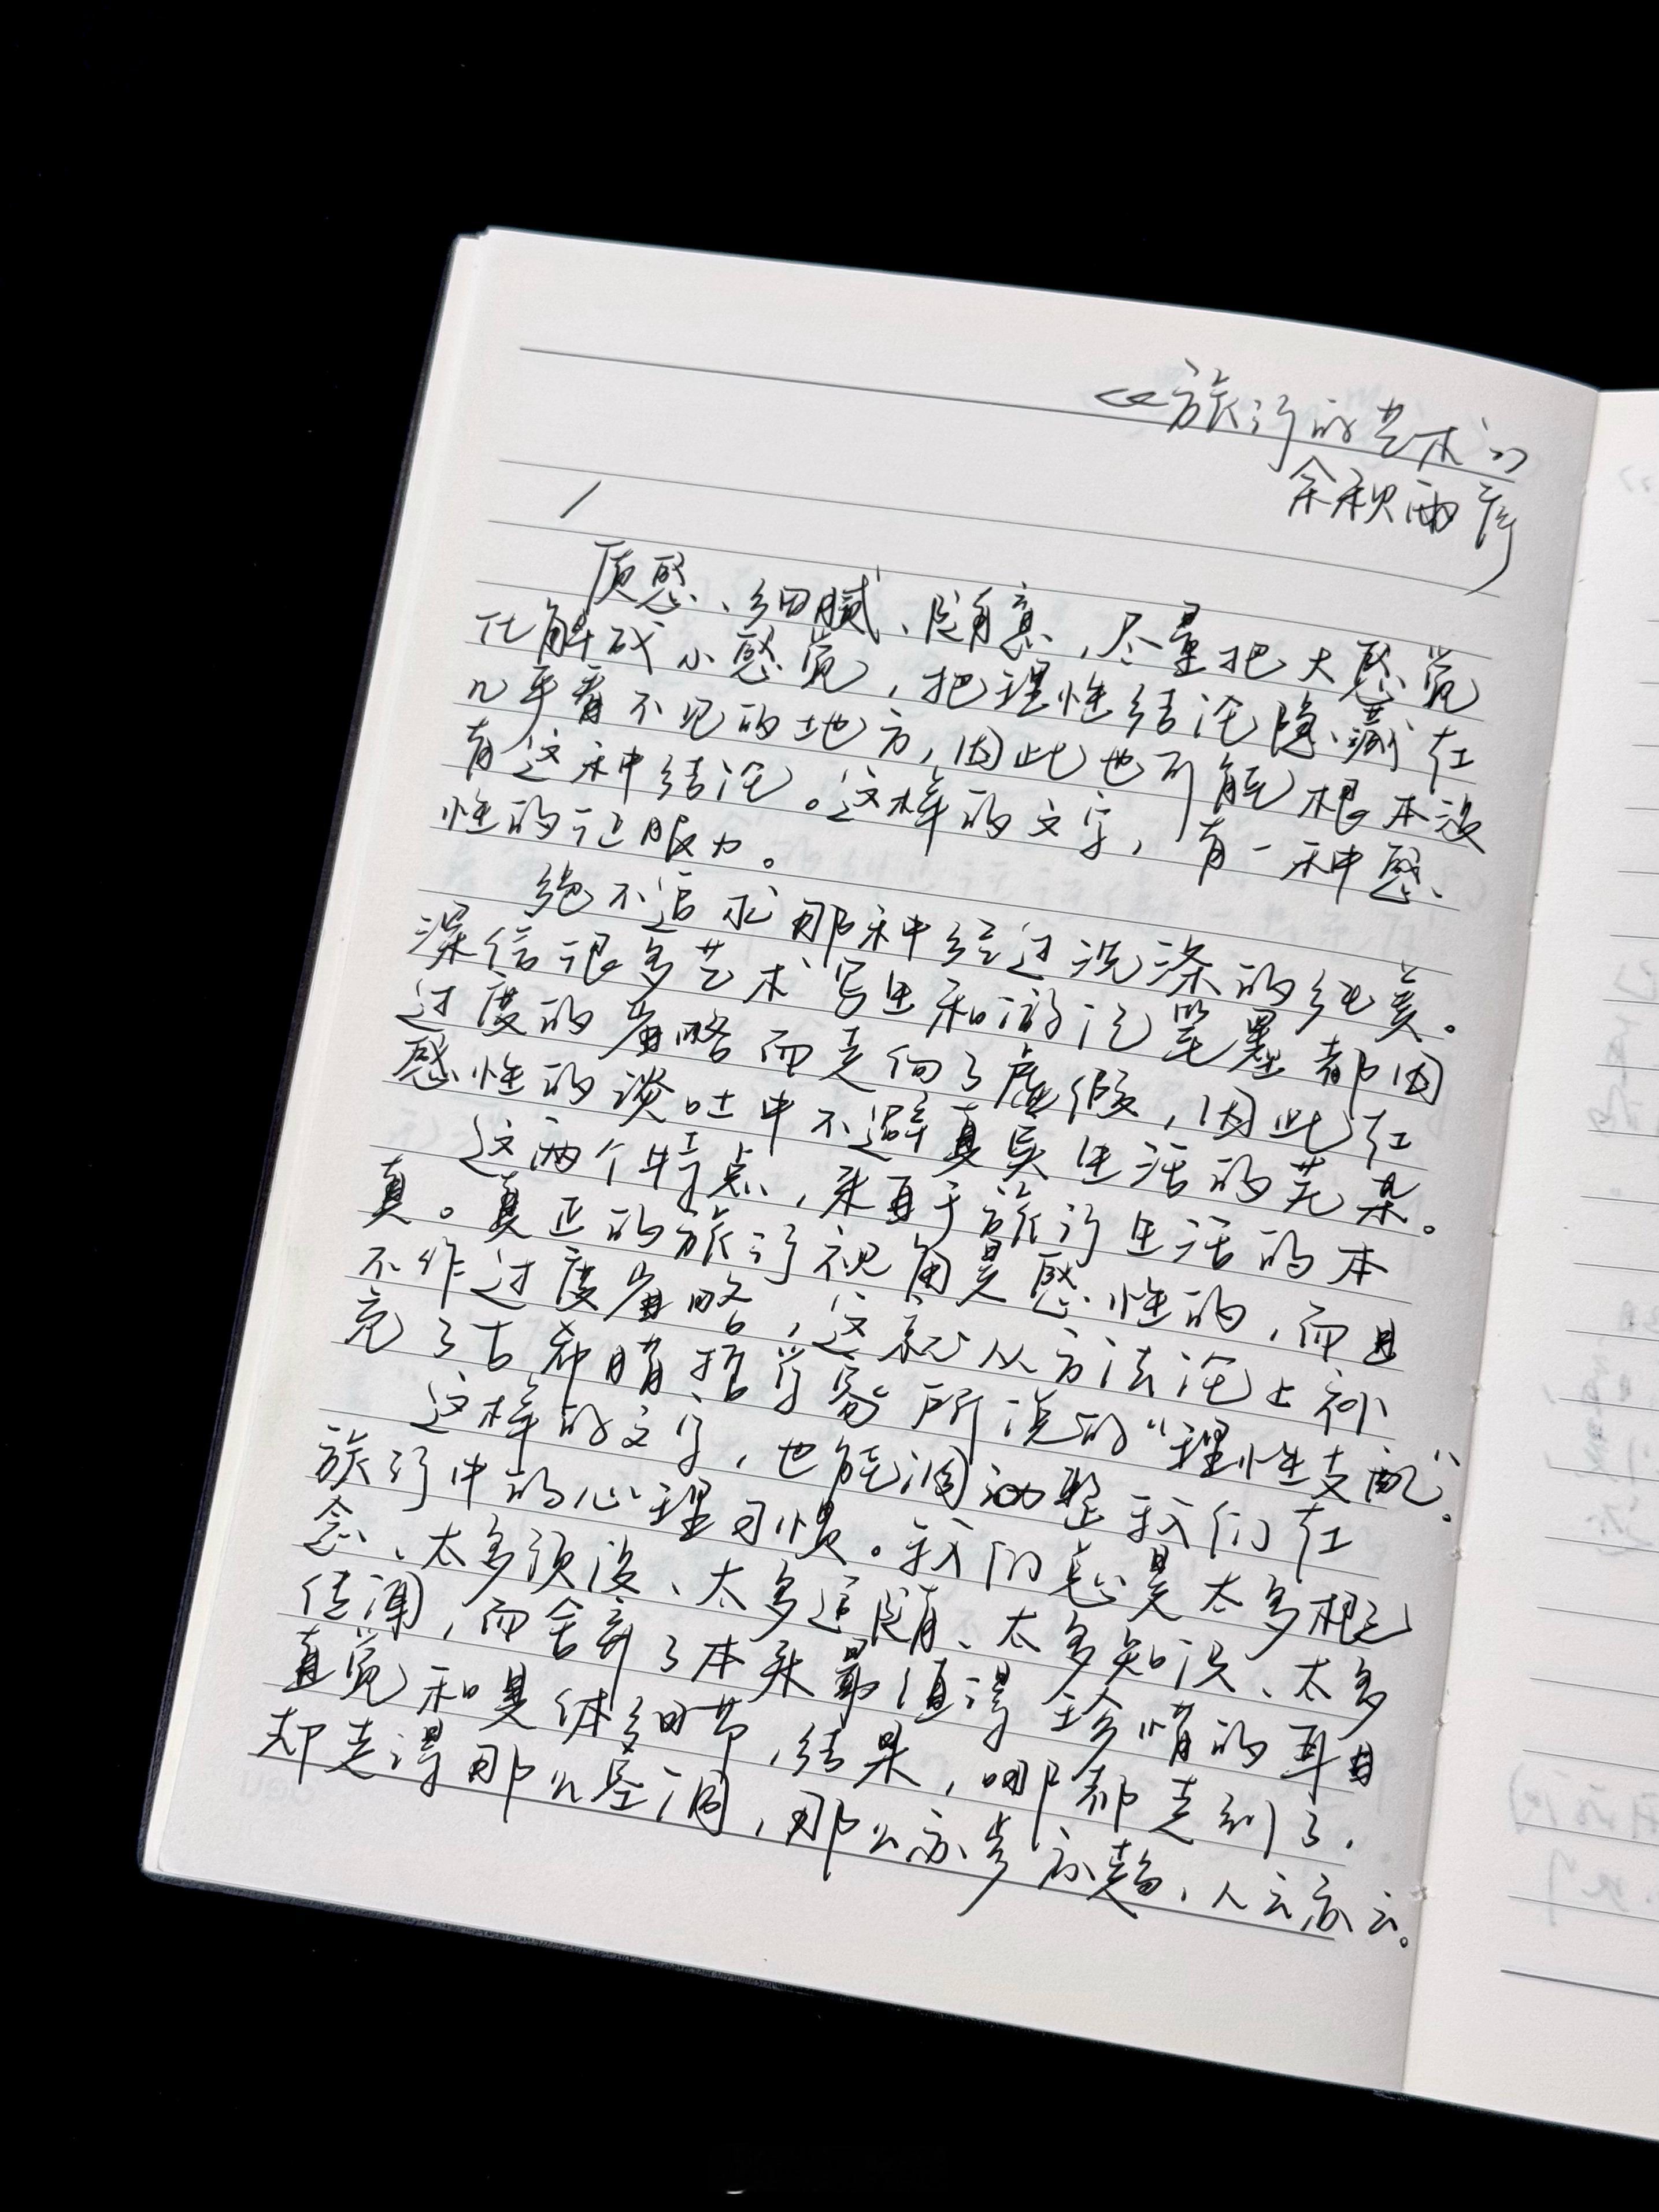 《旅行的艺术》
余秋雨序
1
质感、细腻、随意,尽量把大感觉
化解成小感觉,把理性结论隐藏在
几乎看不见的地方,因此也可能根本没
有这种结论。这样的文字,有一种感
性的征服力。
绝不追求那种经过洗涤的纯美。
深信很多艺术写生和游记笔墨都因
过度的省略而走向了虚假,因此在
感性的谈吐中不避真实生活的芜杂。
这两个特点,来自于旅行生活的本
真。真正的旅行视角是感性的,而且
不作过度省略,这就从方法论上补
充了古希腊哲学家所说的“理性支配”。
这样的文字,也能调整我们在
旅行中的心理习惯。我们总是太多概
念、太多预设、太多追随、太多知识、太多
传闻,而舍弃了本来最值得珍惜的耳目
直觉和具体细节,结果,哪都走到了,
却走得那么空洞,那么亦步亦趋、人云亦云。